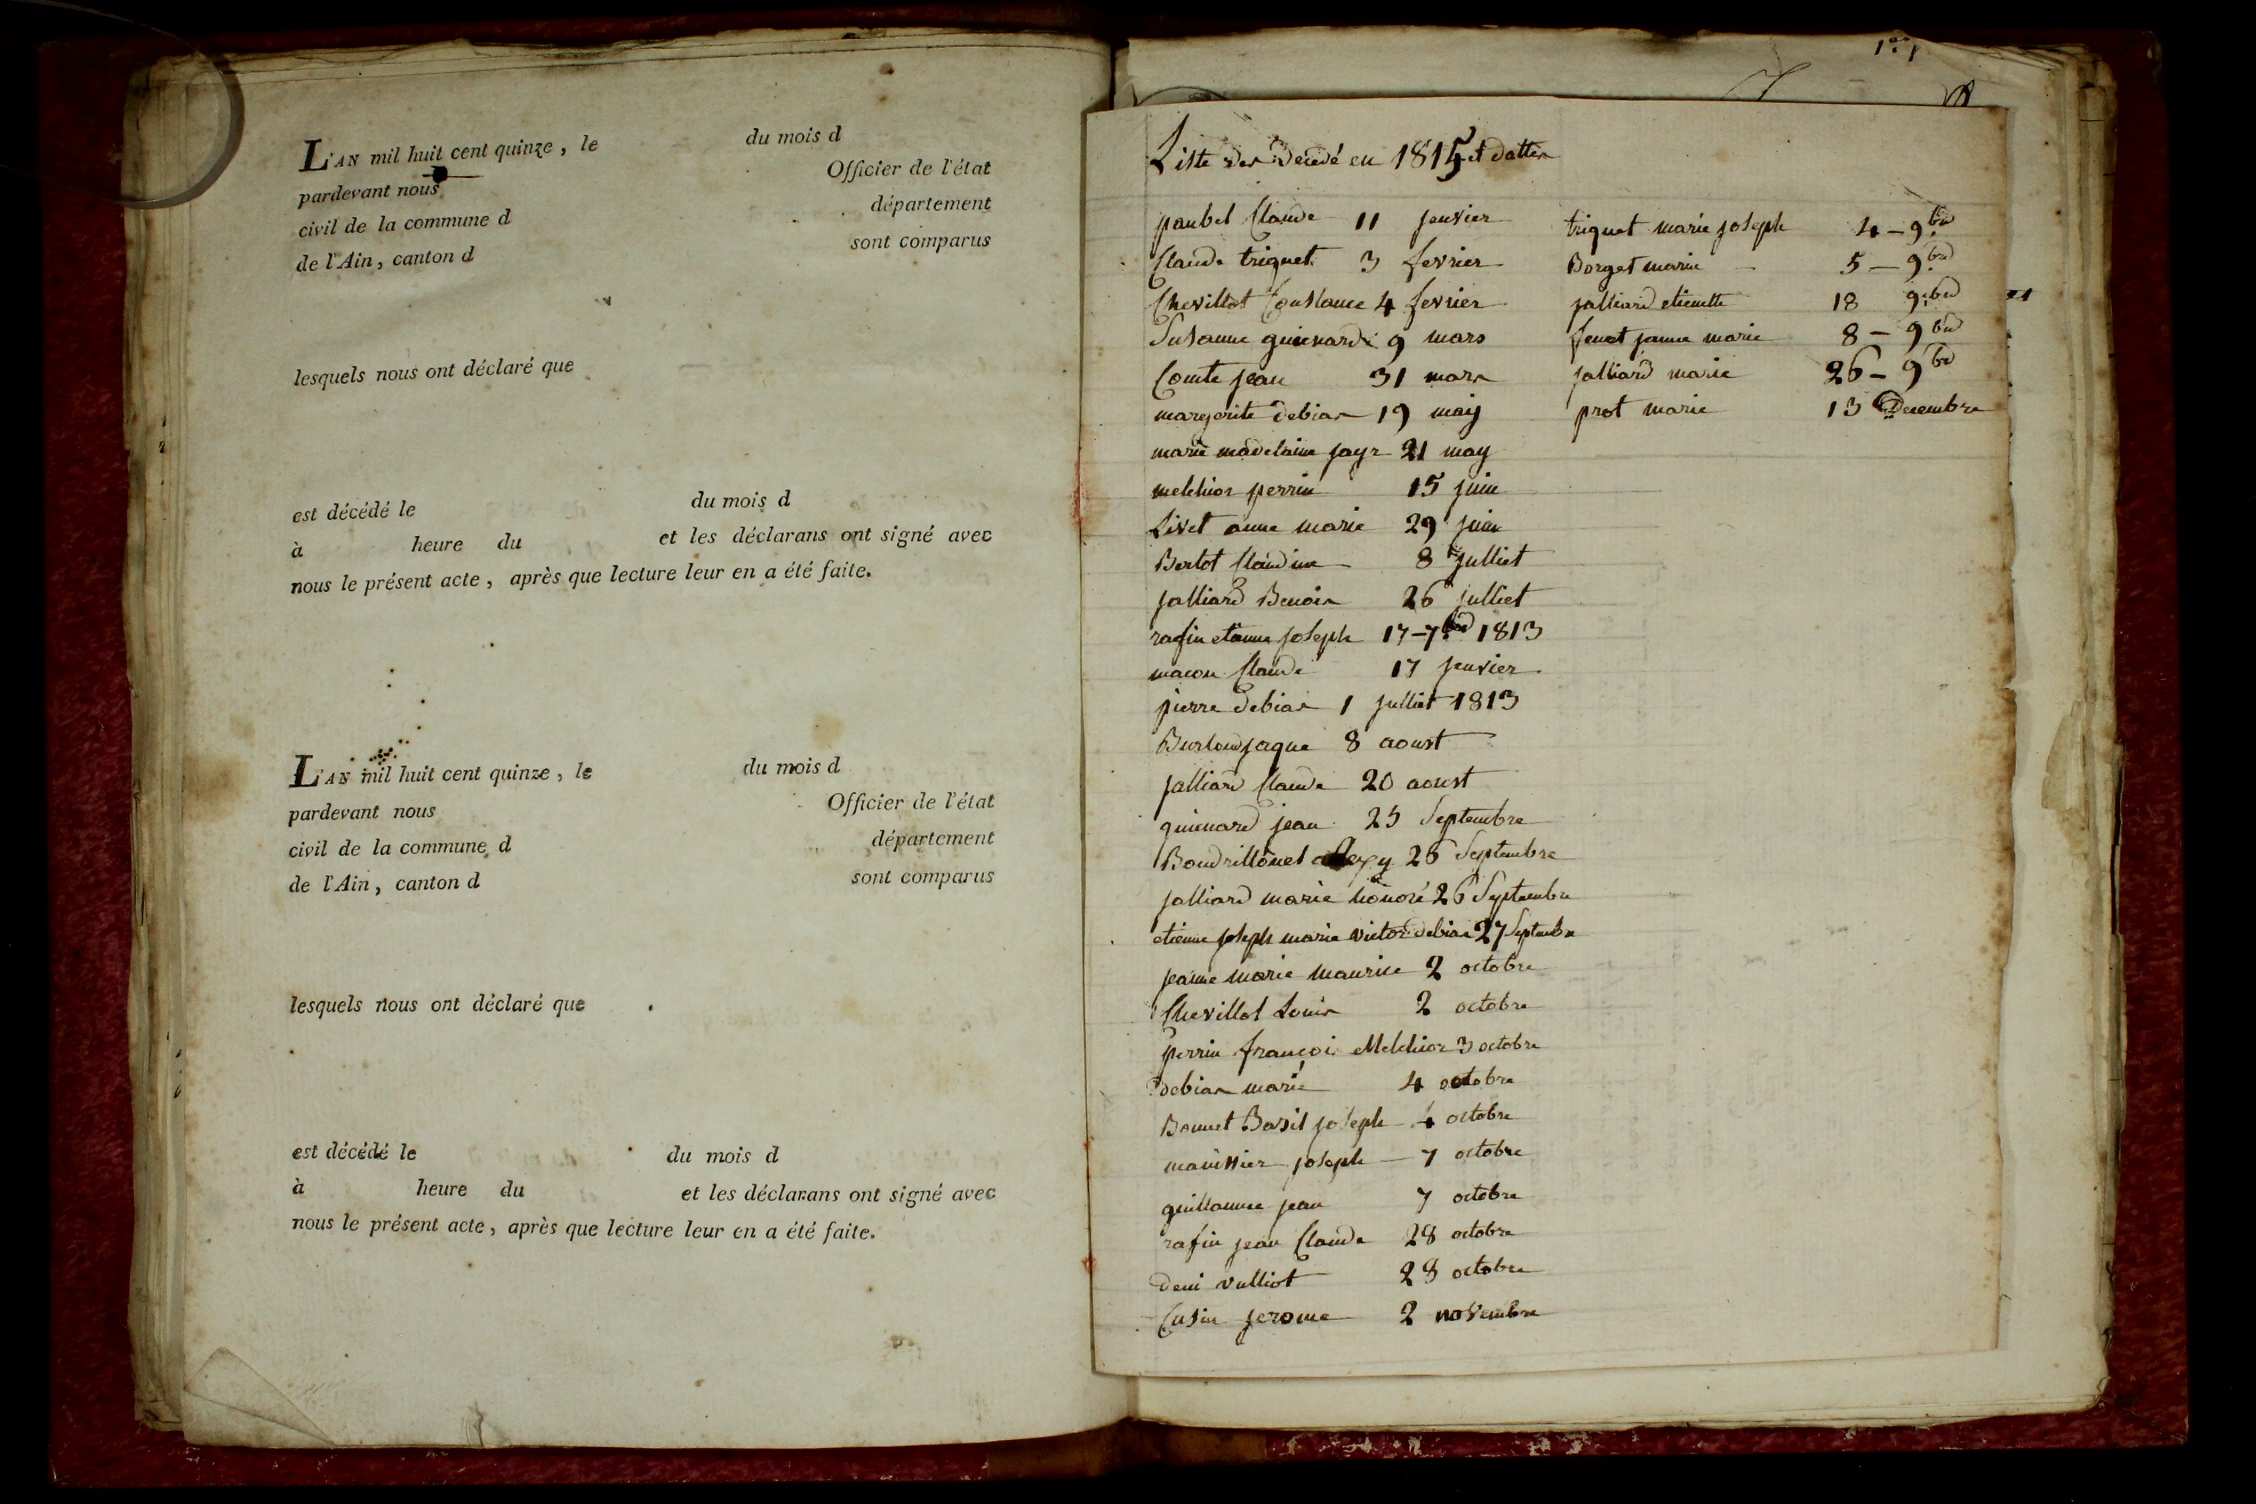 L'AN mil huit cent quinze, le du mois d
pardevant nous Officier de l'état
civil de la commune d département
de l'Ain, canton d sont comparus
lesquels nous ont déclaré que
est décédé le du mois d
à heure du et les déclarans ont signé avec
nous le présent acte, après que lecture leur en a été faite.
L'AN mil huit cent quinze, le du mois d
pardevant nous Officier de l'état
civil de la commune d département
de l'Ain, canton d sont comparus
lesquels nous ont déclaré que
est décédé le du mois d
à heure du et les déclarans ont signé avec
nous le présent acte, après que lecture leur en a été faite.
Liste des Decedé en 1815 et dattes
paubel Claude 11 jenvier
Claude triquet 3 fevrier
Chevillot Constance 4 fevrier
Susanne guienard 9 mars
Comte jean 31 mars
margerite debias 19 maij
marie madelaine jayr 21 may
melchior perrin 15 juin
Livet anne marie 29 juin
Bertot Claudine 8 julliet
jalliard Benois 26 julliet
rafin etienne joseph 17-7bre 1813
macon Claude 17 jenvier
pierre debias 1 julliet 1813
Burloud jaque 8 aoust
jalliard Claude 20 aoust
guienard jean 25 Septembre
Boudrillonet alexy 26 Septembre
jalliard marie honoré 26 Septembre
etienne joseph marie victor debias 27 Septembre
jeanne marie maurice 2 octobre
Chevillot Louis 2 octobre
perrin françois Melchior 3 octobre
debias marie 4 octobre
Bonnet Basil joseph 4 octobre
manissier joseph 7 octobre
guillaume jean 7 octobre
rafin jean Claude 28 octobre
Deni vulliot 28 octobre
Cusin jerome 2 novembre
triquet marie joseph 4 - 9bre
Borget marie - 5 - 9bre
jalliard etienette 18 9bre
fenet janne marie 8 - 9bre
jalliard marie 26 - 9bre
prot marie 13 Decembre